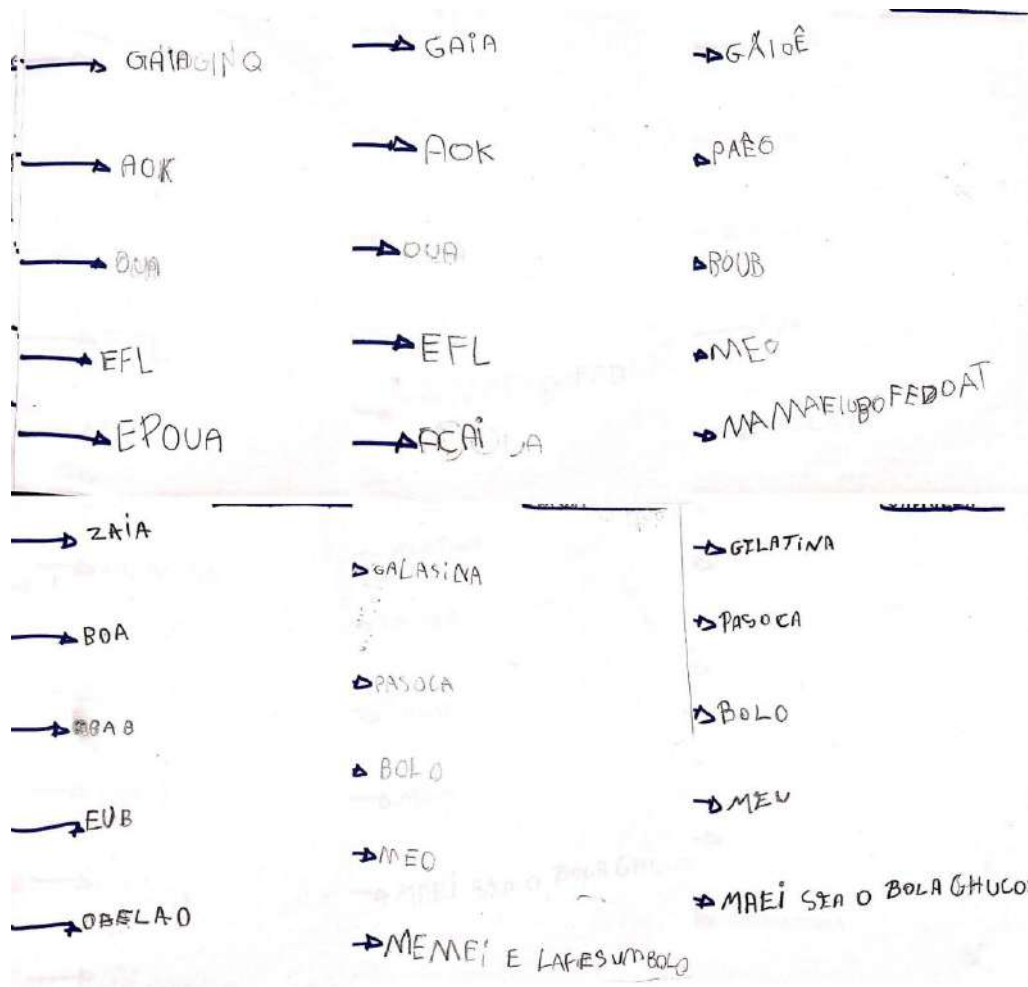 GAIAGINQ
AOK
OUA
EFL
EPOUA
GAIA
AOK
OUA
EFL
AÇAI
GÃIOÊ
PAÊO
BOUB
MEO
MAMAEIUBOFEDOAT
ZAIA
BOA
BAB
EUB
OBELAO
GALASINA
PASOCA
BOLO
MEO
MEMEI E LAFIESUMBOLO
GILATINA
PASOCA
BOLO
MEU
MAEI SEA O BOLA GHUCO